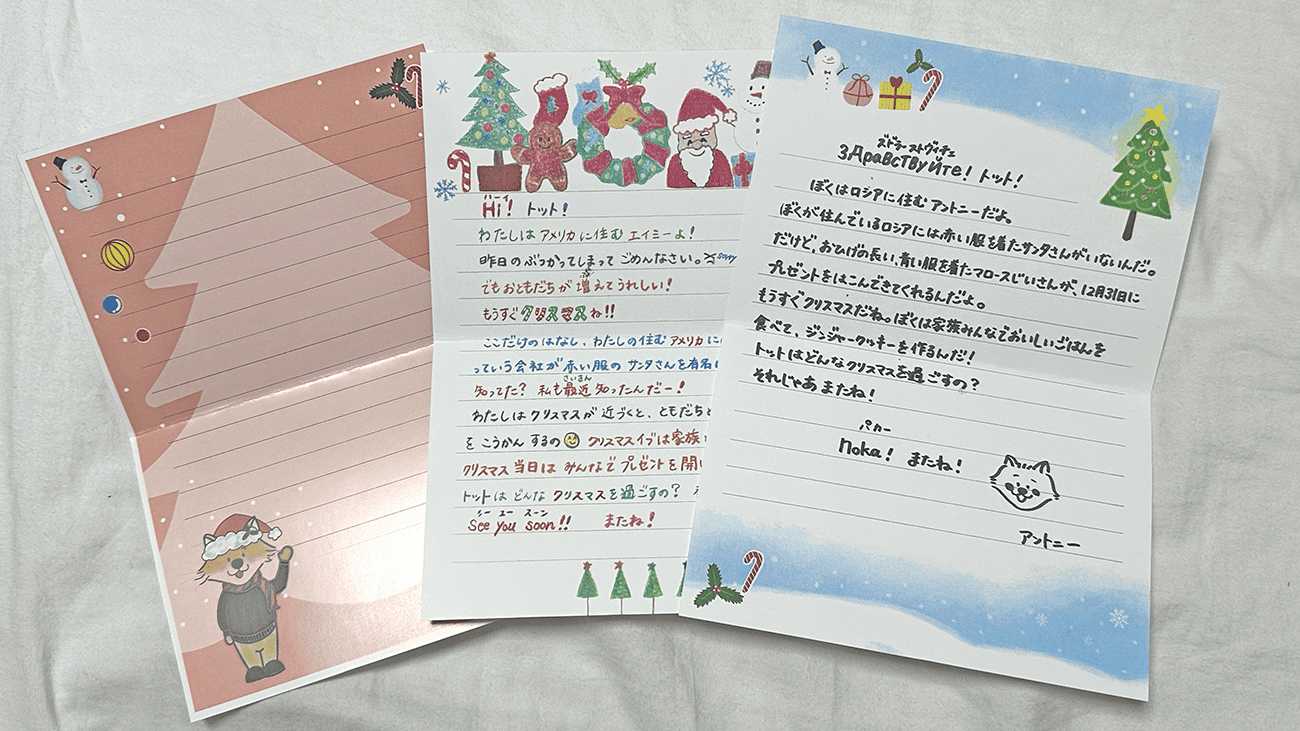 ハーイ
Hi! トット!
わたしは アメリカに住む エイミーよ!
昨日の ぶつかってしまって ごめんなさい。 sorry
でもおともだちが 増えてうれしい!
もうすぐ クリスマスね!!
ここだけのはなし、わたしの住む アメリカに
っていう会社が 赤い服の サンタさんを有名
さいきん
知ってた? 私も最近 知ったんだー!
わたしは クリスマスが 近づくと、ともだちと
を こうかん するの クリスマスイブは 家族
クリスマス 当日は みんなで プレゼントを 開
トットは どんな クリスマスを過ごすの?
シー ユー スーン
See you soon!! またね!
ズドラーストヴィチェ
Здравствуйте! トット!
ぼくはロシアに住む アントニーだよ。
ぼくが住んでいるロシアには赤い服を着たサンタさんがいないんだ。
だけど、おひげの長い、青い服を着たマロースじいさんが、12月31日に
プレゼントをはこんできてくれるんだよ。
もうすぐクリスマスだね。ぼくは家族みんなでおいしいごはんを
食べて、ジンジャークッキーを作るんだ!
トットはどんなクリスマスを過ごすの?
それじゃあ またね!
パカー
Пока! またね!
アントニー